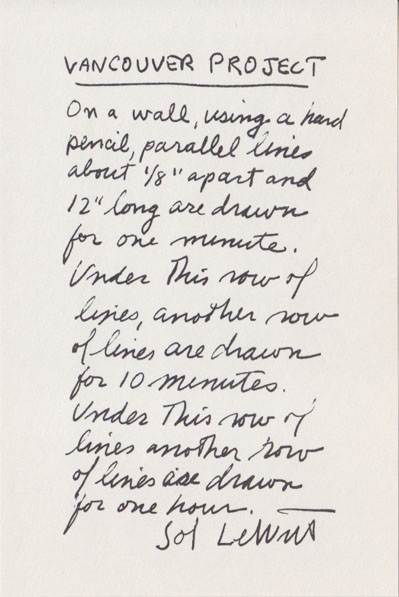 VANCOUVER PROJECT
On a wall, using a hard
pencil, parallel lines
about 1/8" apart and
12" long are drawn
for one minute.
Under this row of
lines, another row
of lines are drawn
for 10 minutes.
Under this row of
lines another row
of lines are drawn
for one hour. —
Sol LeWitt